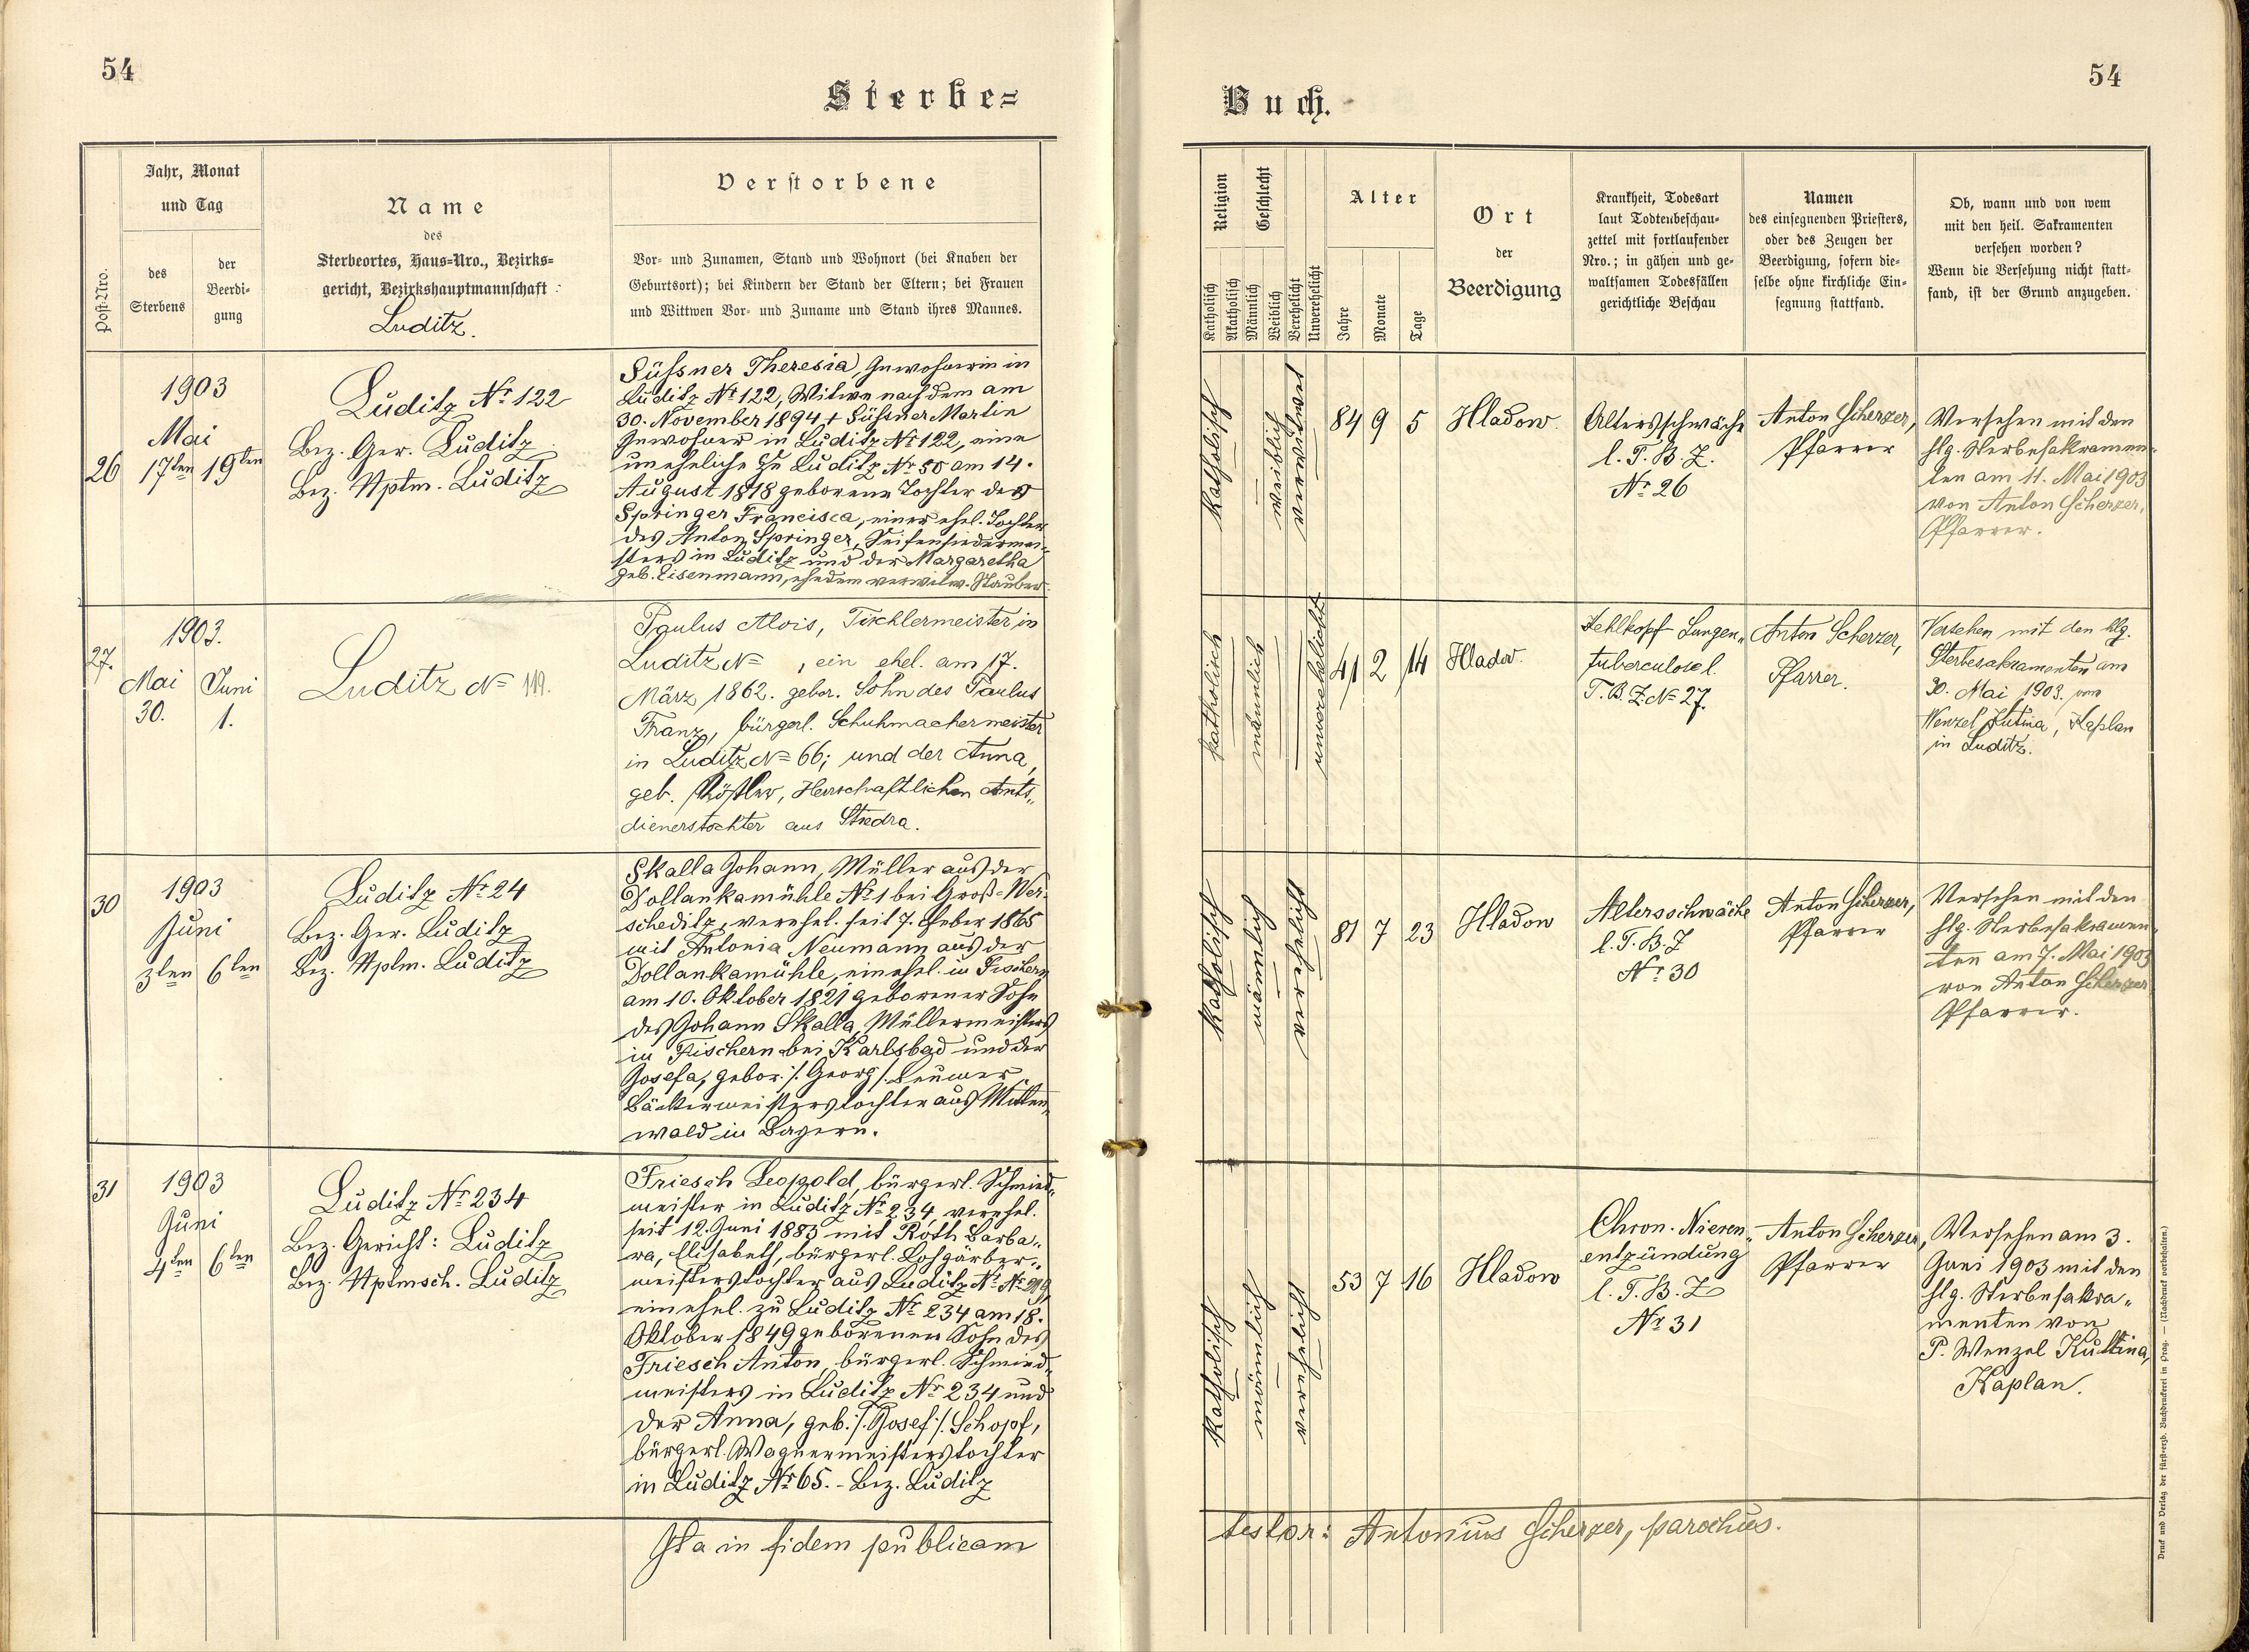 54
Sterbe=
Jahr, Monat
und Tag
Post-Nro.
des
Sterbens
der
Beerdi-
gung
Name
des
Sterbeortes, Haus-Nro., Bezirks=
gericht, Bezirkshauptmannschaft
Luditz.
Verstorbene
Vor- und Zunamen, Stand und Wohnort (bei Knaben der
Geburtsort); bei Kindern der Stand der Eltern; bei Frauen
und Wittwen Vor- und Zuname und Stand ihres Mannes.
26
1903
Mai
17ten 19ten
Luditz Nr. 122
Bez. Ger. Luditz
Bez. Hptm. Luditz
Süßner Theresia, Inwohnerin in
Luditz Nr. 122, Witwe nach dem am
30. November 1894 † Süßner Martin
Inwohner in Luditz Nr. 122, eine
uneheliche zu Luditz Nr. 50 am 14.
August 1818 geborene Tochter der
Springer Francisca, einer ehel. Tochter
des Anton Springer, Seifensiedermei-
sters in Luditz und der Margaretha
geb. Eisenmann, ehedem verwitw. Stauber
27.
1903.
Mai Juni
30. 1.
Luditz No 119.
Paulus Alois, Tischlermeister in
Luditz No , ein ehel. am 17.
März 1862. gebor. Sohn des Paulus
Franz, bürgerl. Schuhmachermeister
in Luditz No 66; und der Anna,
geb. Rößler, Herrschaftlichen Amts„
dienerstochter aus Stiedra.
30
1903
Juni
3ten 6ten
Luditz Nr. 24
Bez. Ger. Luditz
Bez. Hptm. Luditz
Skalla Johann, Müller aus der
Dollankamühle Nr. 1 bei Groß-Wer-
scheditz, verehel. seit 7. Feber 1865
mit Antonia Neumann aus der
Dollankamühle, ein ehel. in Fischern
am 10. Oktober 1821 geborener Sohn
des Johann Skalla, Müllermeisters
in Fischern bei Karlsbad und der
Josefa, gebor. /: Georg :/
Bäckermeisterstochter aus Mitten„
wald in Bayern.
31
1903
Juni
4ten 6ten
Luditz Nr. 234
Bez. Gericht: Luditz
Bez. Hptmsch. Luditz
Friesch Leopold, bürgerl. Schmied„
meister in Luditz Nr. 234, verehel.
seit 12. Juni 1883 mit Roth Barba„
ra, Elisabeth, bürgerl. Lohgärber„
meisterstochter aus Luditz Nr.
ein ehel. zu Luditz Nr. 234 am 18.
Oktober 1849 geborener Sohn des
Friesch Anton, bürgerl. Schmied„
meisters in Luditz Nr. 234 und
der Anna, geb. /: Josef :/ Schopf,
bürgerl. Wagnermeisterstochter
in Luditz Nr. 65. - Bez. Luditz
Ita in fidem publicam
54
Buch.
Religion
Geschlecht
Katholisch
Akatholisch
Männlich
Weiblich
Verehelicht
Unverehelicht
Alter
Jahre
Monate
Tage
Ort
der
Beerdigung
Krankheit, Todesart
laut Todtenbeschau-
zettel mit fortlaufender
Nro.; in gähen und ge-
waltsamen Todesfällen
gerichtliche Beschau
Namen
des einsegnenden Priesters,
oder des Zeugen der
Beerdigung, sofern die-
selbe ohne kirchliche Ein-
segnung stattfand.
Ob, wann und von wem
mit den heil. Sakramenten
versehen worden?
Wenn die Versehung nicht statt-
fand, ist der Grund anzugeben.
katholisch
weiblich
verwitwet
84 9 5
Hladow.
Altersschwäche
l. T. B. Z.
Nr. 26
Anton Scherzer,
Pfarrer
Versehen mit den
hlg. Sterbesakramen-
ten am 11. Mai 1903
von Anton Scherzer,
Pfarrer.
katholisch
männlich
unverehelicht
41 2 14
Hladov.
Kehlkopf Lungen„
tuberculose l.
T. B. Z. No 27.
Anton Scherzer,
Pfarrer.
Versehen mit den hlg.
Sterbesakramenten am
30. Mai 1903. vom
Wenzel Kutina, Kaplan
in Luditz.
katholisch
männlich
verehelicht
81 7 23
Hladow
Altersschwäche
l. T. B. Z
Nr. 30
Anton Scherzer,
Pfarrer
Versehen mit den
hlg. Sterbesakramen„
ten am 7. Mai 1903
von Anton Scherzer
Pfarrer.
katholisch
männlich
verehelicht
53 7 16
Hladow
Chron. Nieren„
entzündung
l. T. B. Z
Nr. 31
Anton Scherzer,
Pfarrer
Versehen am 3.
Juni 1903 mit den
hlg. Sterbesakra„
menten von
P. Wenzel Kuttina,
Kaplan.
testor: Antonius Scherzer, parochus.
Druck und Verlag der fürst-erzb. Buchdruckerei in Prag. — (Nachdruck vorbehalten.)